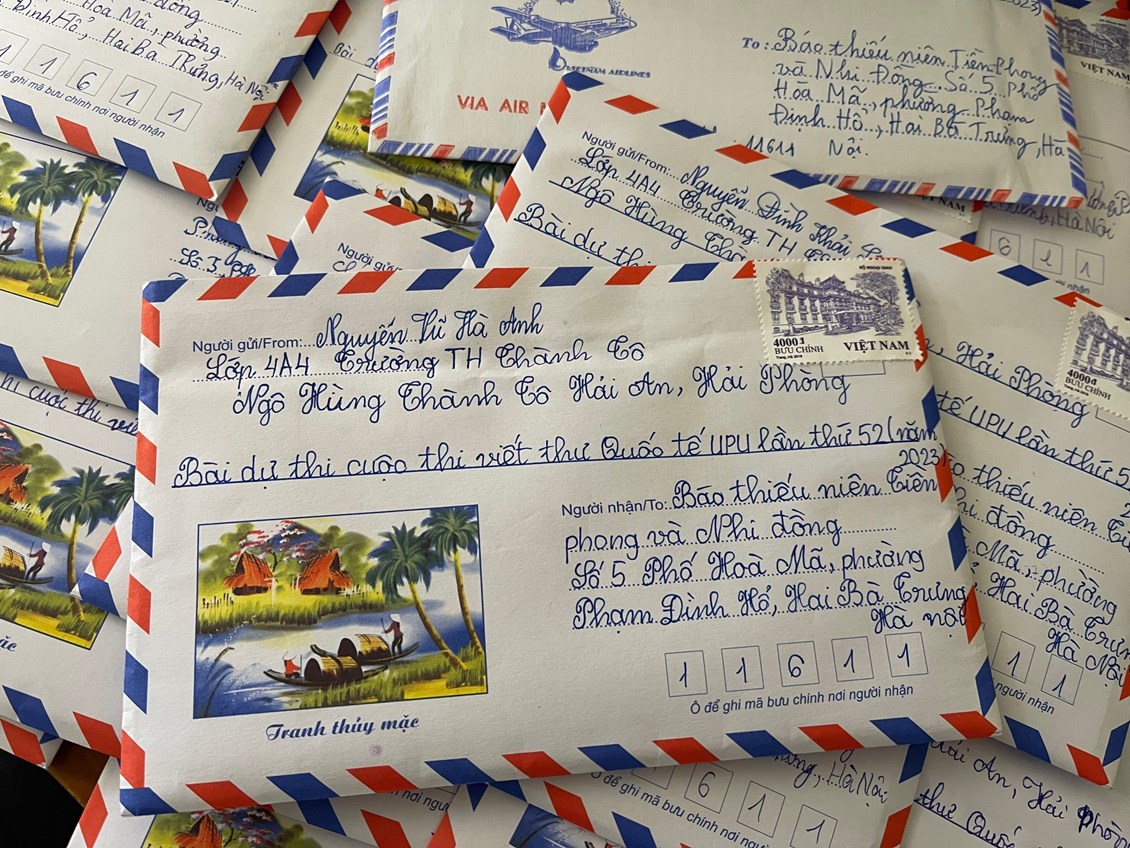 Hoà Mã, phường
Đình Hổ, Hai Bà Trưng, Hà Nội
1 1 6 1 1
Ô để ghi mã bưu chính nơi người nhận
Bài d
VIETNAM AIRLINES
VIA AIR
2023)
To: Báo thiếu niên Tiền Phong
và Nhi Đồng Số 5 Phố
Hòa Mã, phường Phạm
Đình Hổ, Hai Bà Trưng, Hà
11611 Nội.
VIỆT NAM
Người gửi/From: Nguyễn Đình Khải
Lớp 4A4 Trường TH
Ngô Hùng Thà
Bài dự thi
Người gửi
Hà Nội
6 1 1
nhận
Số 3
BỘ NGOẠI GIAO
4000đ
BƯU CHÍNH
VIỆT NAM
Người gửi/From: Nguyễn Vũ Hà Anh
Lớp 4A4 Trường TH Thành Tô
Ngô Hùng Thành Tô Hải An, Hải Phòng
Bài dự thi cuộc thi viết thư Quốc tế UPU lần thứ 52 (năm
2023
Người nhận/To: Báo thiếu niên Tiền
phong và Nhi đồng
Số 5 Phố Hoà Mã, phường
Phạm Đình Hổ, Hai Bà Trưng
Hà nội
1 1 6 1 1
Ô để ghi mã bưu chính nơi người nhận
Tranh thủy mặc
hi cuộc thi viế
mặc
4000đ
BƯU CHÍNH
Hải Phòng
tế UPU lần thứ 5
thiếu niên Ti
hi đồng
Mã, phường
Hai Bà Trưn
Hà Nội
1 1
người nhận
Hà Nội
6 1 1
Ô để ghi mã bưu chính nơi người
Hải An, Hải Phòn
thư Quốc